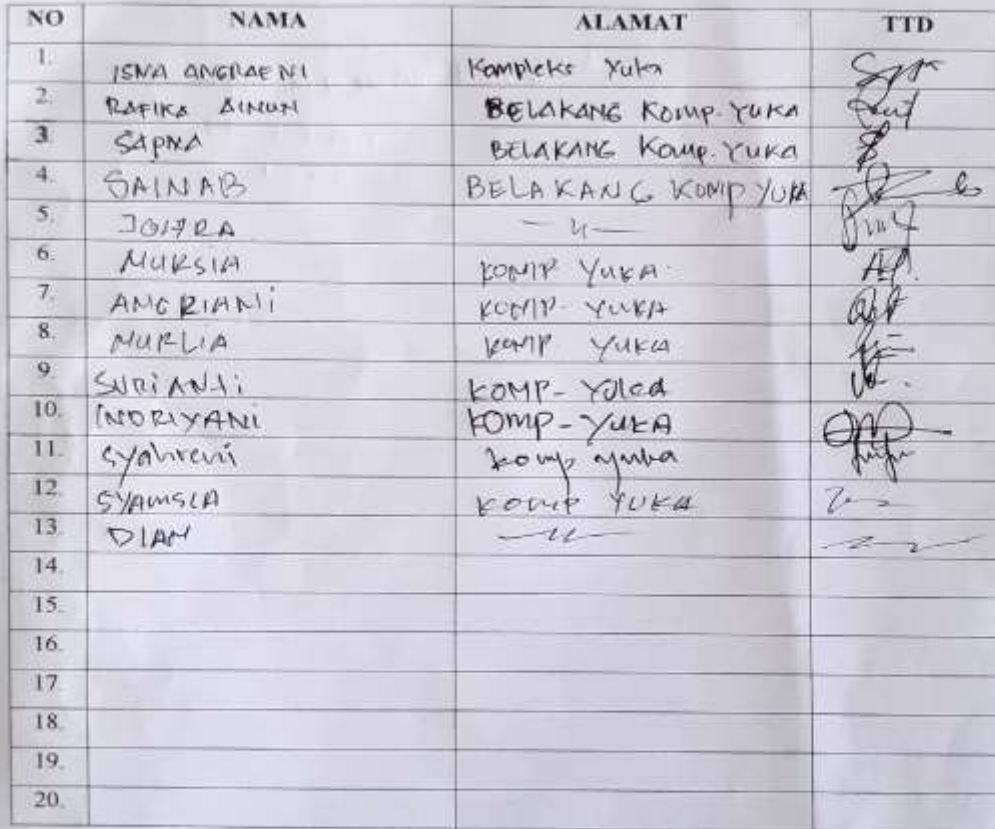 NO NAMA ALAMAT TTD
1. ISNA ANGRAENI Kompleks Yuka
2. RAFIKA AINUN BELAKANG Komp. YUKA
3 SAPNA BELAKANG Komp. YUKA
4. SAINAB BELAKANG KOMP YUKA
5. — 〃 —
6. NURSIA KOMP YUKA
7. ANGRIANI KOMP. YUKA
8. NURLIA KOMP YUKA
9. SURIANTI KOMP-
10. INDRIYANI KOMP-YUKA
11. Syahreni komp
12. SYAMSIA KOMP YUKA
13. DIAN — 〃 —
14.
15.
16.
17.
18.
19.
20.